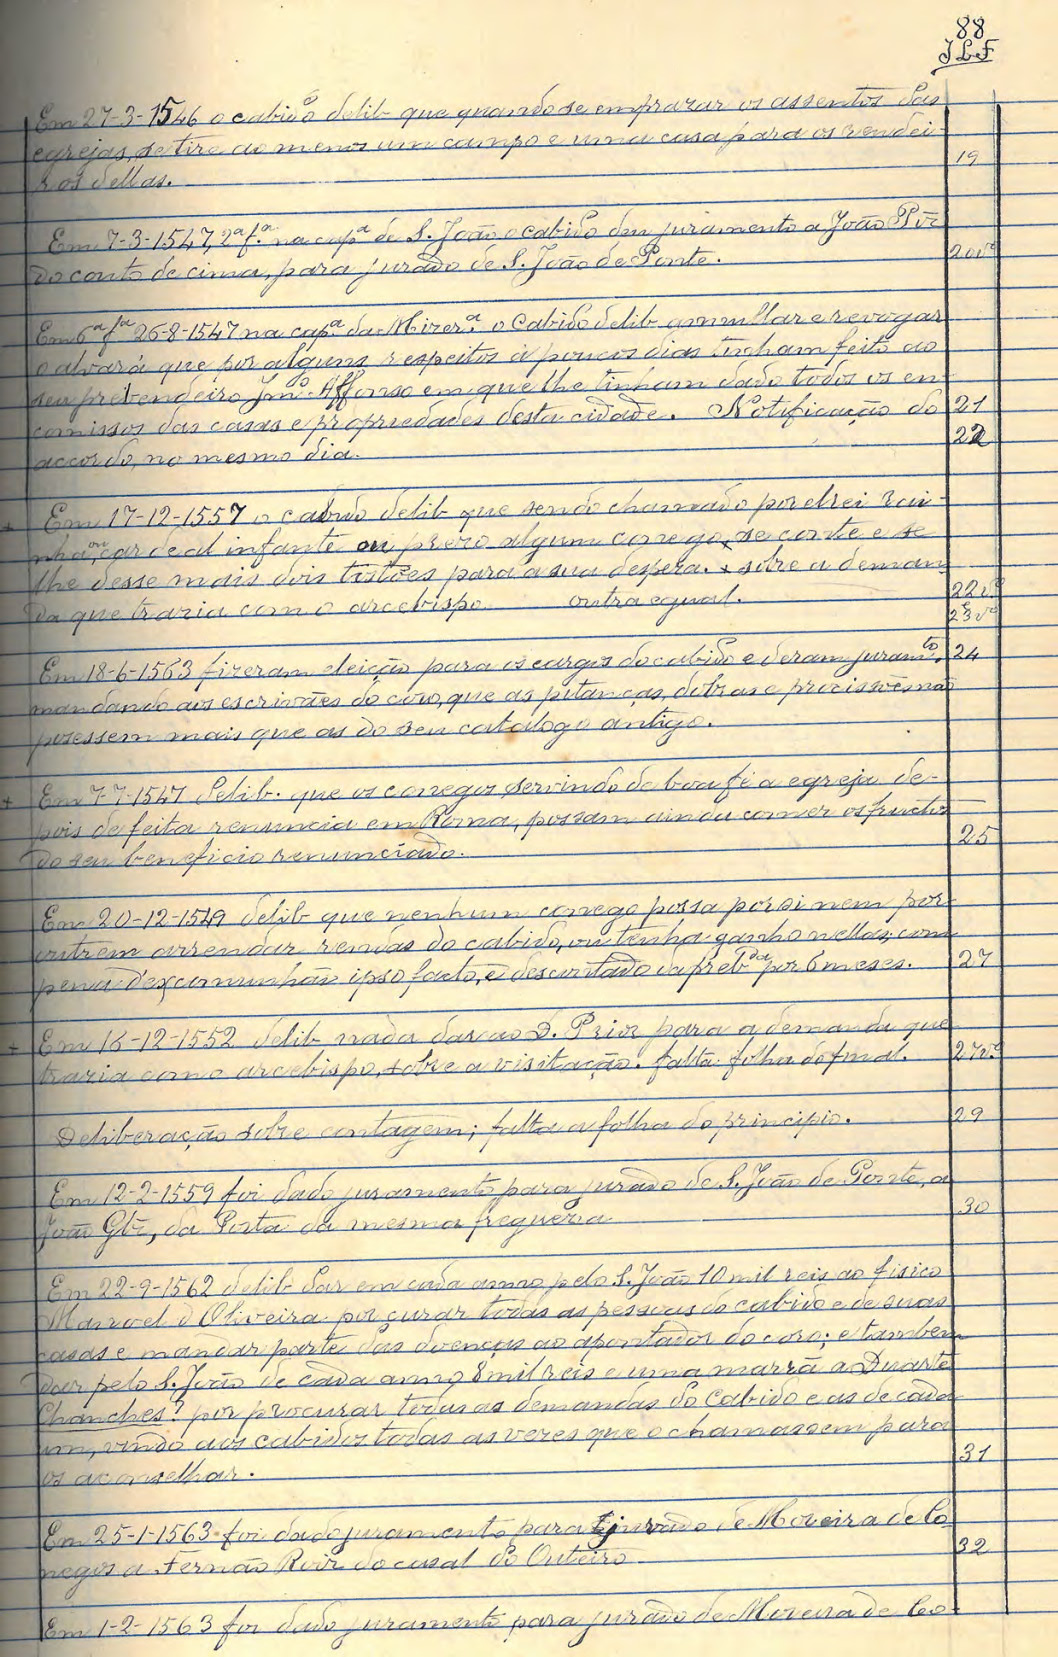 88
J L F
Em 27-3-1546 o cabido delib que quando se emprazar os assentos das
egrejas, se tire ao menos um campo e uma casa para os rendei-
ros dellas.
19
Em 7-3-1547, 2ª fª. na capª de S. João o cabido deu juramento a João Pir
do couto de cima, para jurado de S. João de Ponte.
20vº
Em 6ª fª 26-8-1547 na capª da Mizerª. o Cabido delib annullar e revogar
o alvará que por alguns respeitos á poucos dias tinham feito ao
seu prebendeiro Jmº Affonso em que lhe tinham dado todos os en-
comissos das casas e propriedades desta cidade. Notificação do
21
accordo, no mesmo dia.
22
Em 17-12-1557 o cabido delib que sendo chamado por elrei rai-
nha, ou cardeal infante ou prero algum conego, se conte e se
lhe desse mais dois tustões para a sua despeza. + sobre a deman-
da que trazia com o arcebispo outra egual.
22vº
e
23vº
Em 18-6-1563 fizeram eleição para os cargos do cabido e deram juramto,
24
mandando aos escrivães do côro, que as pitanças, dobras e procissões não
posessem mais que as do seu catalogo antigo.
+ Em 7-7-1547 delib. que os conegos, servindo de boa fé a egreja de-
pois de feita renuncia em Roma, possam ainda comer os fructos
do seu beneficio renunciado.
25
Em 20-12-1549 delib que nenhum conego possa por si nem por
outrem arrendar rendas do cabido, ou tenha ganho nellas, com
pena d'excomunhão ipso facto, e descontado da prebda por 6 meses.
27
+ Em 16-12-1552 delib nada dar ao D. Prior para a demanda que
trazia com o arcebispo, sobre a visitação. falta folha do final.
27vº
Deliberação sobre contagem; falta a folha do principio.
29
Em 12-2-1559 foi dado juramento para jurado de S. João de Ponte, a
João Glz, da Porta da mesma freguezia
30
Em 22-9-1562 delib dar em cada anno pelo S. João 10 mil reis ao fisico
Manoel d'Oliveira por curar todas as pessoas do cabido e de suas
casas e mandar parte das doenças ao apontador do coro; e tambem
dar pelo S. João de cada anno 8 mil reis e uma marrã a Duarte
Chanches? por procurar todas as demandas do Cabido e as de cada
um, vindo aos cabidos todas as vezes que o chamassem para
os aconselhar.
31
Em 25-1-1563 foi dado juramento para jurado de Moreira de Co-
negos a Fernão Roiz do casal do Outeiro
32
Em 1-2-1563 foi dado juramento para jurado de Moreira de Co-